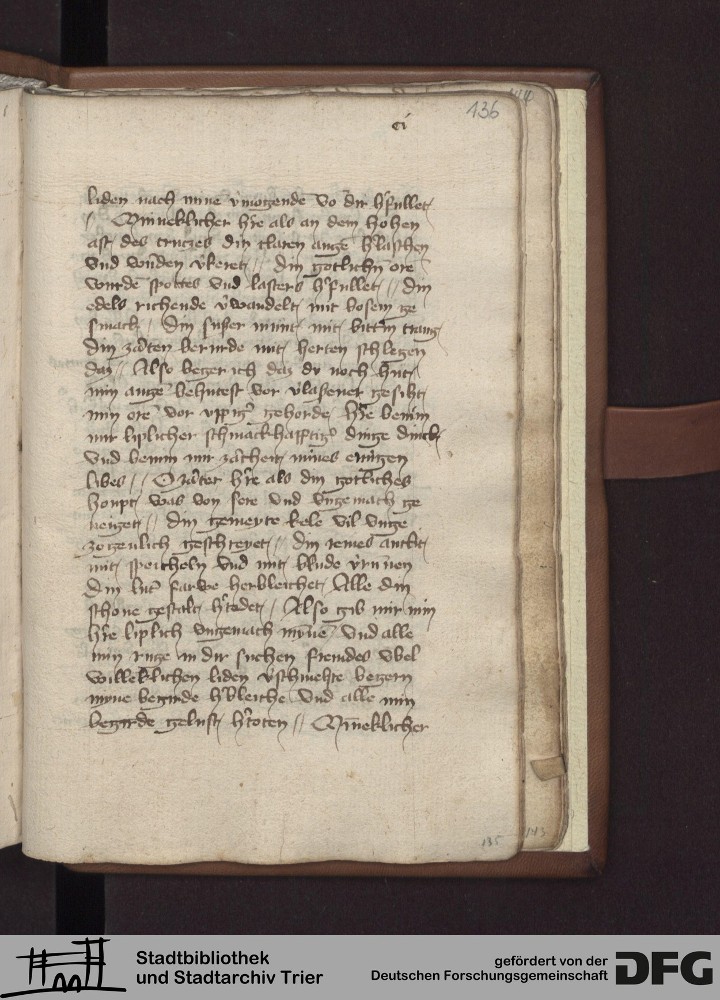 136
ci
liden nach mine
Minneklicher h're als an dem hohen
ast des cruczes din claren auge h'laschen
vnd wu'den v'keret // din gotlich'n ore
wurde spottes vnd lasters h'fullet // din
edels richende v'wandelt mit bosem ge
smack / din susser munt mit bitt'm trang
din za'ten berurde mit herten schlegen
daz // Also beger ich daz du noch hut
min auge behutest vor v'lasener gesiht
min ore vor vppig' gehorde h're benim
mir liplicher schmackhafftig' dinge dinck
vnd benim mir zartheit mines
libes // O zarter h're als din gotliches
houpt was von sere vnd vngemach ge
neiget // din kele vil vnge
zogenlich // din reines antlit
mit speicheln vnd mit blude v'runnen
din lut' farwe herbleichet Alle din
schone gestalt h'todet / Also gib mir min
h're liplich vngemach vnd alle
min ruge in dir suchen fremdes vbel
willeklichen liden v'schmehte begern
myne begirde h'bleiche vnd alle min
begirde gelust h'toten // Minneklicher
135
143
Stadtbibliothek
und Stadtarchiv Trier
gefördert von der
Deutschen Forschungsgemeinschaft
DFG